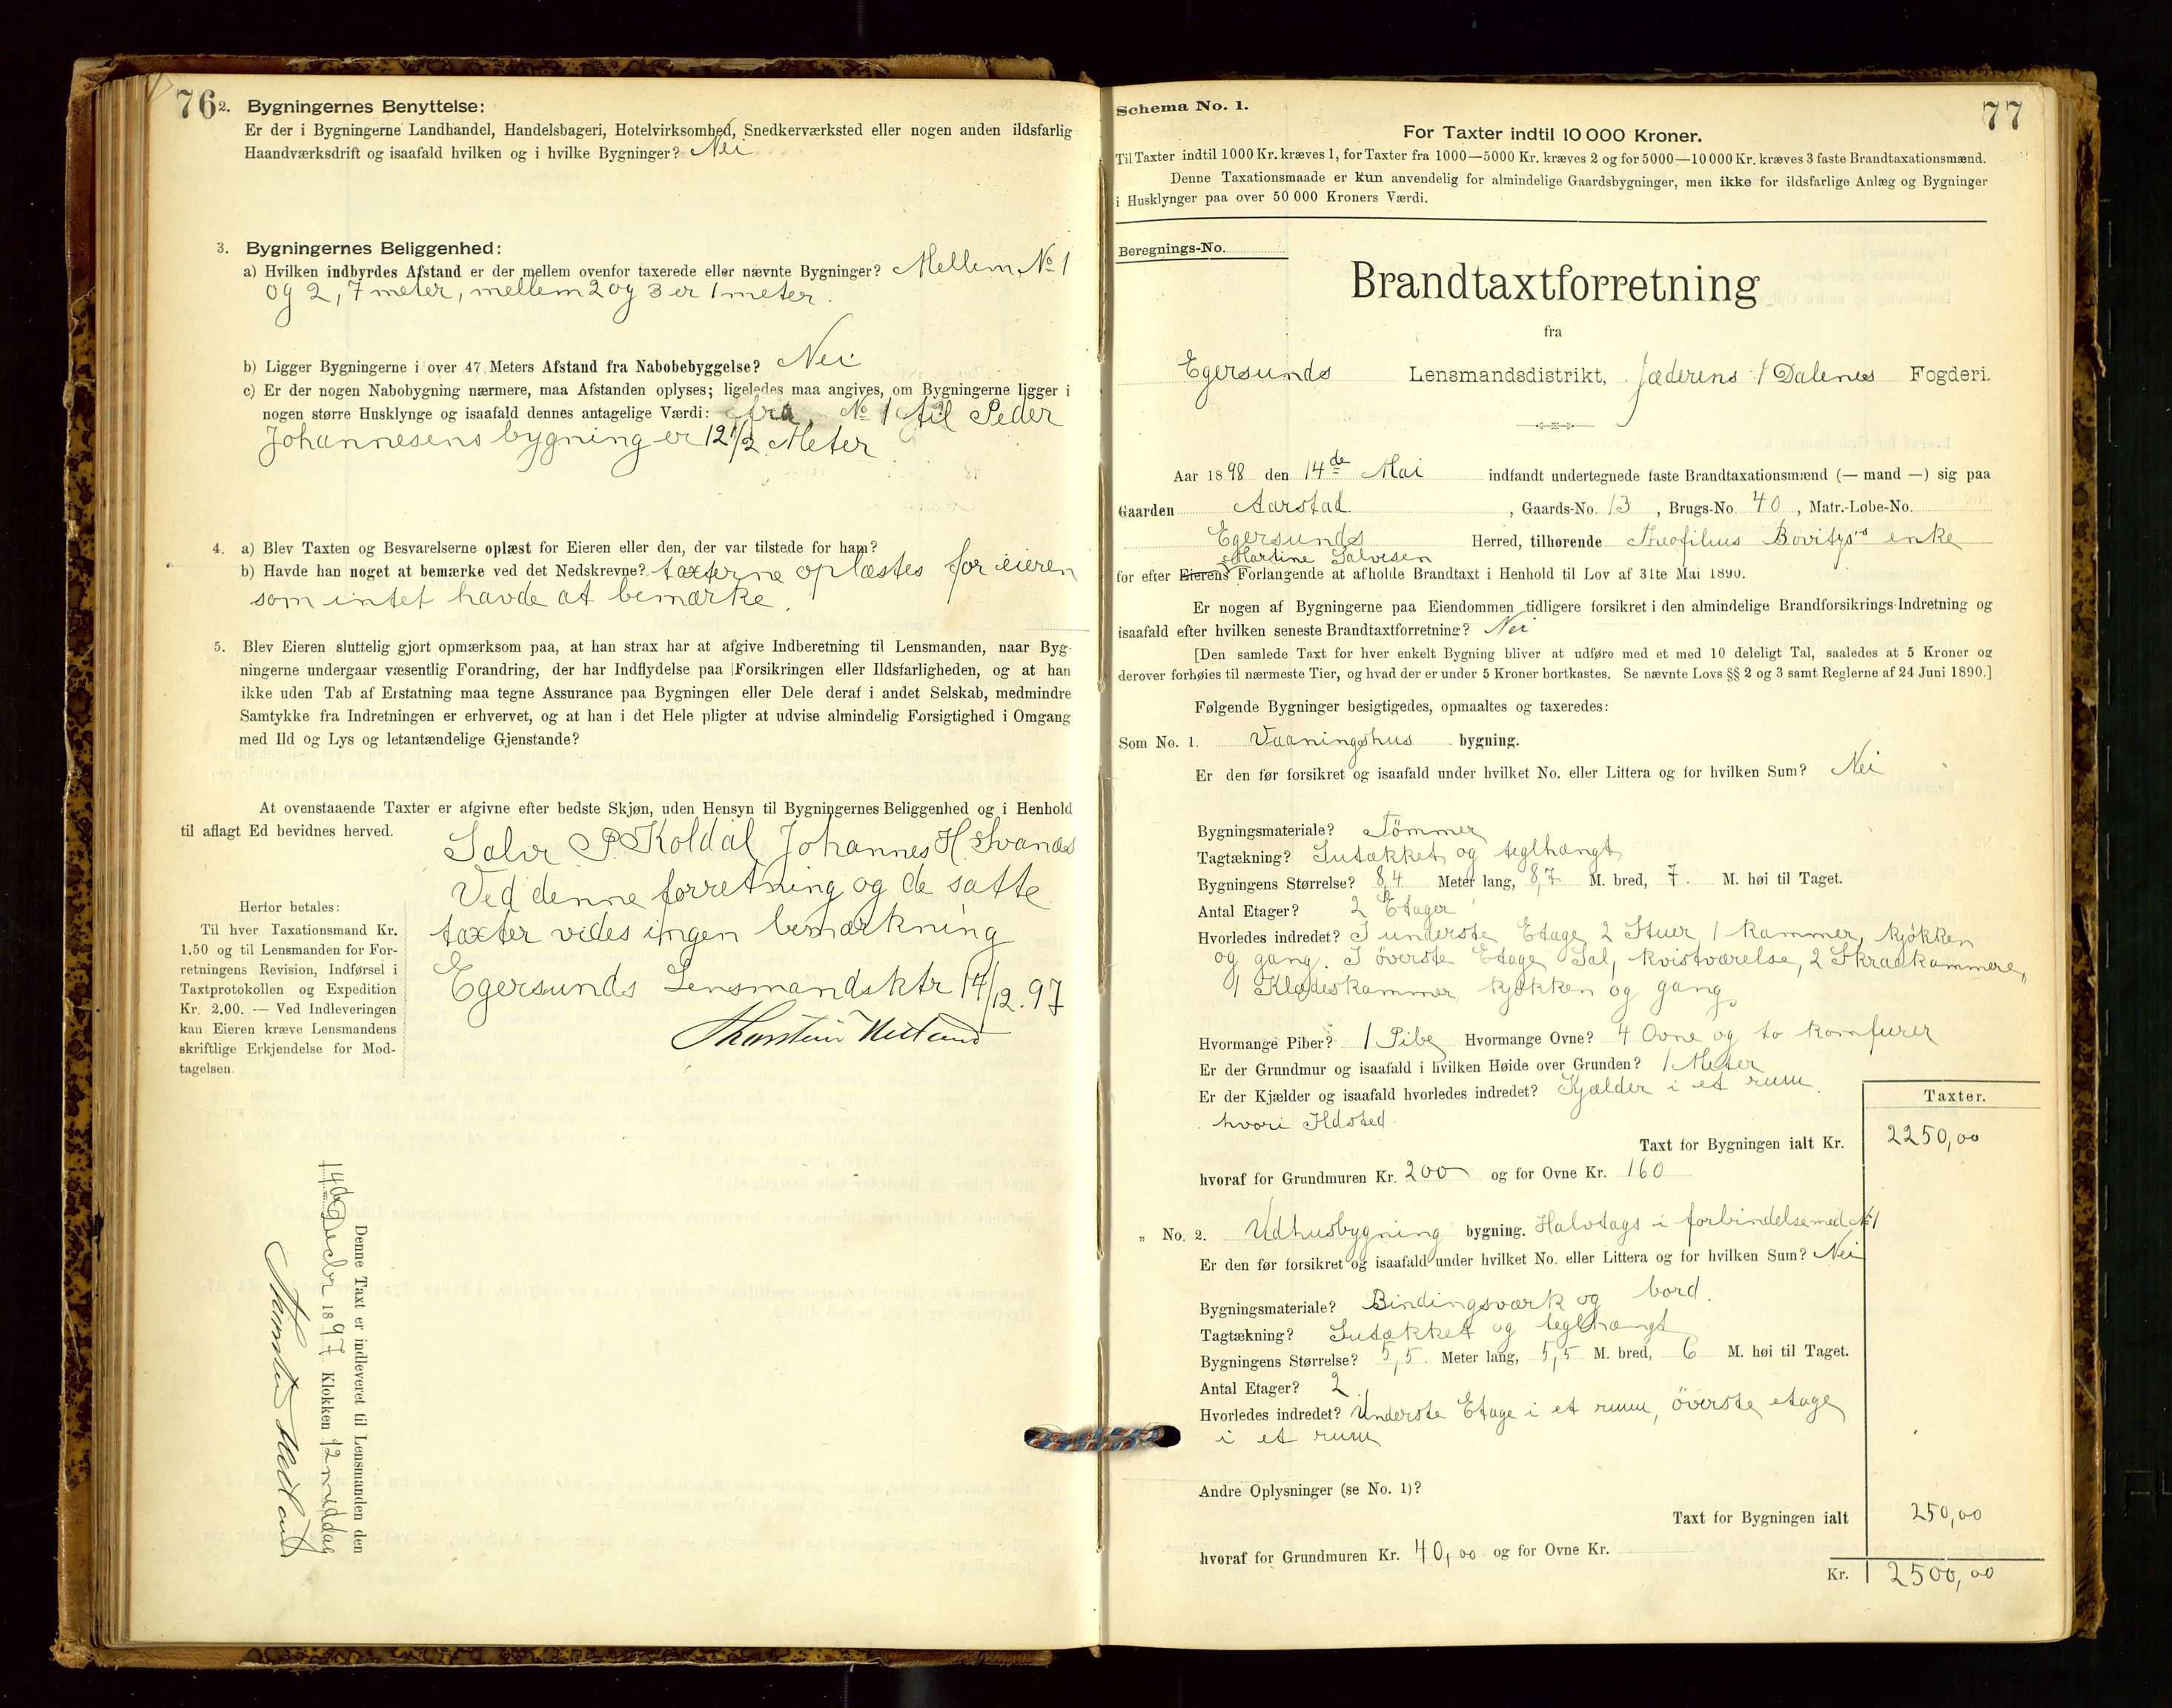 76
2. Bygningernes Benyttelse:
Er der i Bygningerne Landhandel, Handelsbageri, Hotelvirksomhed, Snedkerværksted eller nogen anden ildsfarlig
Haandværksdrift og isaafald hvilken og i hvilke Bygninger? Nei
3. Bygningernes Beliggenhed:
a) Hvilken indbyrdes Afstand er der mellem ovenfor taxerede eller nævnte Bygninger? Mellem No 1
og 2, 7 meter, mellem 2 og 3 er 1 meter.
b) Ligger Bygningerne i over 47 Meters Afstand fra Nabobebyggelse? Nei
c) Er der nogen Nabobygning nærmere, maa Afstanden oplyses; ligeledes maa angives, om Bygningerne ligger i
nogen større Husklynge og isaafald dennes antagelige Værdi: fra No 1 til Peder
Johannesens bygning er 12 1/2 Meter
4. a) Blev Taxten og Besvarelserne oplæst for Eieren eller den, der var tilstede for ham?
b) Havde han noget at bemærke ved det Nedskrevne? taxterne oplæstes for eieren
som intet havde at bemærke.
5. Blev Eieren sluttelig gjort opmærksom paa, at han strax har at afgive Indberetning til Lensmanden, naar Byg-
ningerne undergaar væsentlig Forandring, der har Indflydelse paa Forsikringen eller Ildsfarligheden, og at han
ikke uden Tab af Erstatning maa tegne Assurance paa Bygningen eller Dele deraf i andet Selskab, medmindre
Samtykke fra Indretningen er erhvervet, og at han i det Hele pligter at udvise almindelig Forsigtighed i Omgang
med Ild og Lys og letantændelige Gjenstande?
At ovenstaaende Taxter er afgivne efter bedste Skjøn, uden Hensyn til Bygningernes Beliggenhed og i Henhold
til aflagt Ed bevidnes herved.
Salve P. Koldal Johannes H. Svanes
Ved denne forretning og de satte
taxter vides ingen bemærkning
Egersunds Lensmandsktr 14/12.97
Thorstein
Herfor betales:
Til hver Taxationsmand Kr.
1.50 og til Lensmanden for For-
retningens Revision, Indførsel i
Taxtprotokollen og Expedition
Kr. 2.00. — Ved Indleveringen
kan Eieren kræve Lensmandens
skriftlige Erkjendelse for Mod-
tagelsen.
Denne Taxt er indleveret til Lensmanden den
14de Decbr 1897 Klokken 12 middag
77
Schema No. 1.
For Taxter indtil 10 000 Kroner.
Til Taxter indtil 1000 Kr. kræves 1, for Taxter fra 1000—5000 Kr. kræves 2 og for 5000—10 000 Kr. kræves 3 faste Brandtaxationsmænd.
Denne Taxationsmaade er kun anvendelig for almindelige Gaardsbygninger, men ikke for ildsfarlige Anlæg og Bygninger
i Husklynger paa over 50 000 Kroners Værdi.
Beregnings-No.
Brandtaxtforretning
fra
Egersunds Lensmandsdistrikt, Jæderens & Dalenes Fogderi.
Aar 1898 den 14de Mai indfandt undertegnede faste Brandtaxationsmænd (— mand —) sig paa
Gaarden Aarstad, Gaards-No. 13, Brugs-No. 40, Matr.-Løbe-No.
Egersunds Herred, tilhørende Theofilius enke
Martine Salvesen
for efter Eierens Forlangende at afholde Brandtaxt i Henhold til Lov af 31te Mai 1890.
Er nogen af Bygningerne paa Eiendommen tidligere forsikret i den almindelige Brandforsikrings-Indretning og
isaafald efter hvilken seneste Brandtaxtforretning? Nei
[Den samlede Taxt for hver enkelt Bygning bliver at udføre med et med 10 deleligt Tal, saaledes at 5 Kroner og
derover forhøies til nærmeste Tier, og hvad der er under 5 Kroner bortkastes. Se nævnte Lovs §§ 2 og 3 samt Reglerne af 24 Juni 1890.]
Følgende Bygninger besigtigedes, opmaaltes og taxeredes:
Som No. 1. Vaaningshus bygning.
Er den før forsikret og isaafald under hvilket No. eller Littera og for hvilken Sum? Nei
Bygningsmateriale? Tömmer
Tagtækning? Sutækket og teglhængt
Bygningens Størrelse? 8,4 Meter lang, 8,7 M. bred, 7 M. høi til Taget.
Antal Etager? 2 Etager
Hvorledes indredet? I underste Etage 2 Stuer 1 kammer, kjøkken
og gang. I överste Etage Sal, kvistværelse, 2 Skraakammere,
1 Klædeskammer kjøkken og gang
Hvormange Piber? 1 Pibe Hvormange Ovne? 4 Ovne og to komfurer
Er der Grundmur og isaafald i hvilken Høide over Grunden? 1 Meter
Er der Kjælder og isaafald hvorledes indredet? Kjælder i et rum
hvori Ildsted.
Taxter.
Taxt for Bygningen ialt Kr. 2250,00
hvoraf for Grundmuren Kr. 200 og for Ovne Kr. 160
„ No. 2. Udhusbygning bygning. Halvtags i forbindelse med No 1
Er den før forsikret og isaafald under hvilket No. eller Littera og for hvilken Sum? Nei
Bygningsmateriale? Bindingsværk og bord.
Tagtækning? Sutækket og teglhængt
Bygningens Størrelse? 5,5 Meter lang, 5,5 M. bred, 6 M. høi til Taget.
Antal Etager? 2
Hvorledes indredet? Underste Etage i et rum, överste etage
i et rum
Andre Oplysninger (se No. 1)?
Taxt for Bygningen ialt 250,00
hvoraf for Grundmuren Kr. 40,00 og for Ovne Kr.
Kr. 2500,00